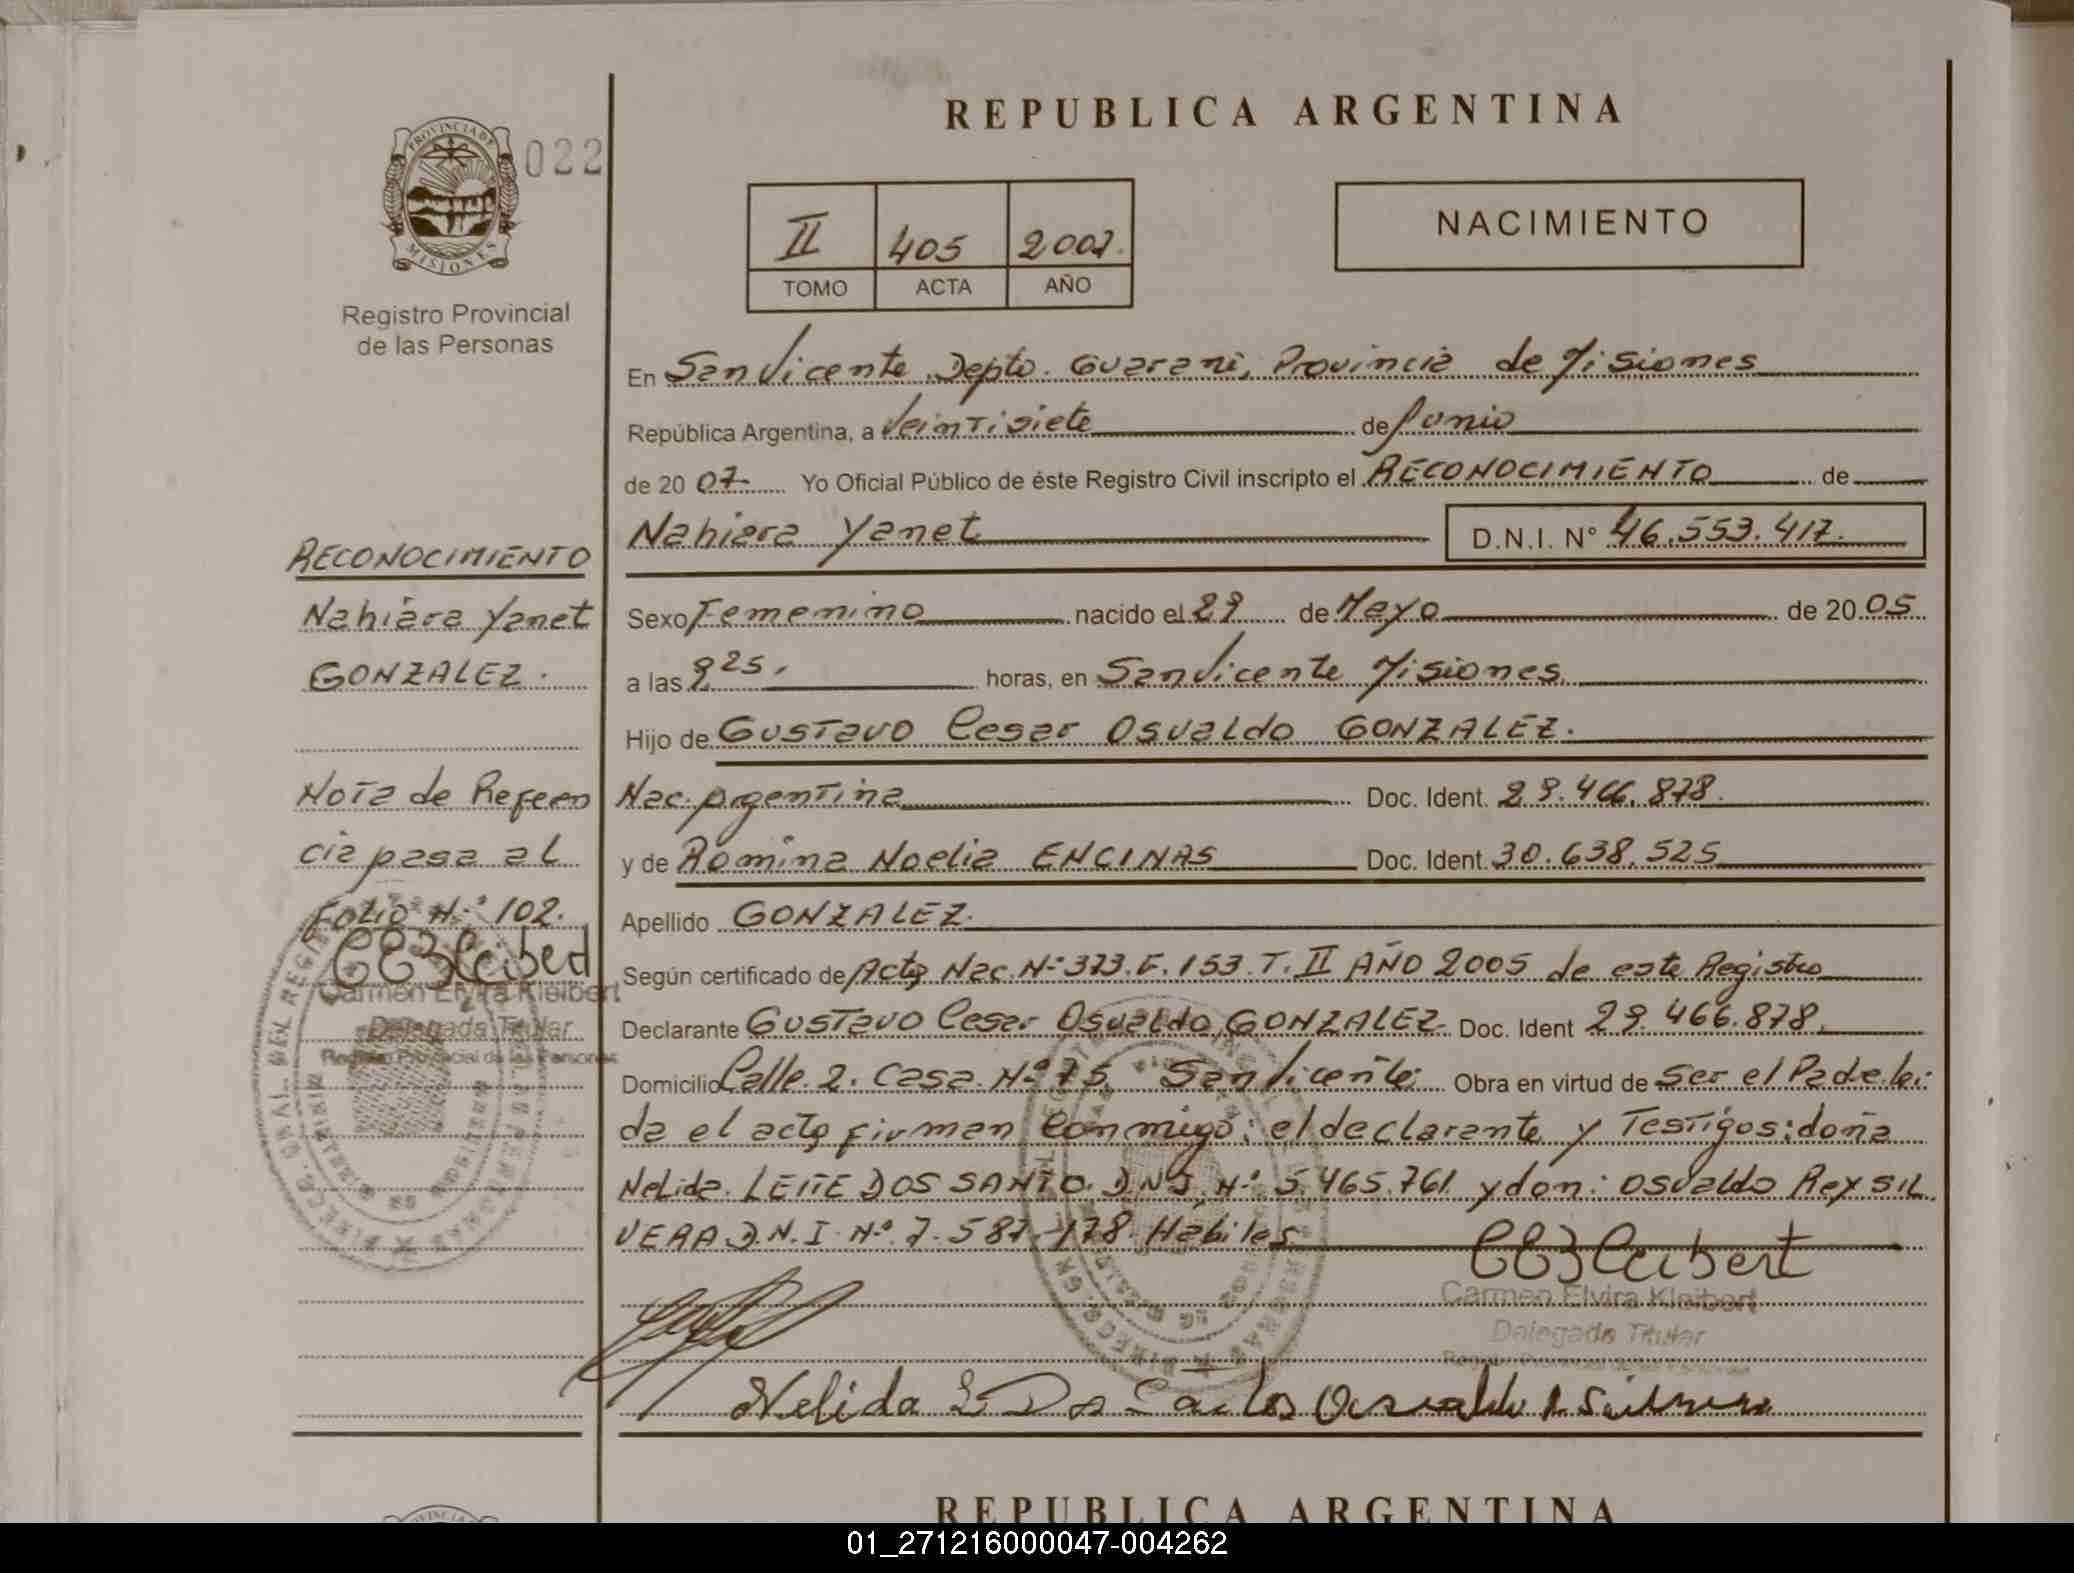 REPUBLICA ARGENTINA
PROVINCIA DE MISIONES
022
II 405 2007.
TOMO ACTA AÑO
NACIMIENTO
Registro Provincial
de las Personas
En San Vicente Depto. Guarani, Provincia de Misiones
República Argentina, a Veintisiete de Junio
de 20 07 Yo Oficial Público de éste Registro Civil inscripto el RECONOCIMIENTO de
Nahiara Yanet D.N.I. Nº 46.553.417.
RECONOCIMIENTO
Nahiara Yanet
GONZALEZ.
Nota de Referen
cia pasa al
Folio Nº 102.
CEKleibert
Carmen Elvira Kleibert
Delegada Titular
Registro Provincial de las Personas
Sexo Femenino nacido el 29 de Mayo de 20 05
a las 9 25. horas, en San Vicente Misiones
Hijo de Gustavo Cesar Osvaldo GONZALEZ.
Nac. Argentina Doc. Ident. 29.466.878.
y de Romina Noelia ENCINAS Doc. Ident. 30.638.525
Apellido GONZALEZ.
Según certificado de Acta Nac. Nº 373. F. 153. T. II AÑO 2005 de este Registro
Declarante Gustavo Cesar Osvaldo GONZALEZ. Doc. Ident 29.466.878.
Domicilio Calle 2. Casa Nº 75. San Vicente. Obra en virtud de Ser el Padre lei
da el acta firman conmigo: el declarante y Testigos: doña
Nelida LEITE DOS SANTO. D.N.I. Nº 5.465.761 y don: Osvaldo Rey SIL
VERA D.N.I. Nº 7.587.178. Habiles
CEKleibert
Carmen Elvira Kleibert
Delegada Titular
Registro Provincial de las Personas
Nelida L Dos Santos Osvaldo R Silvera
REPUBLICA ARGENTINA
01_271216000047-004262